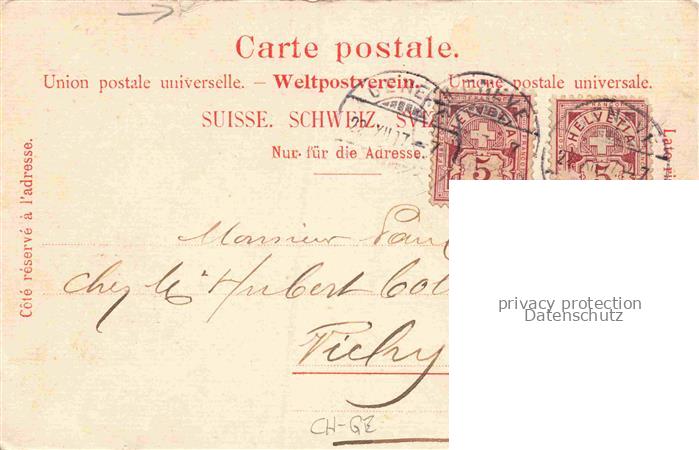 Carte postale.
Union postale universelle. — Weltpostverein. — Unione postale universale.
SUISSE. SCHWEIZ. SVIZ
Nur für die Adresse.
Côté réservé à l'adresse.
HELVETIA
5
5
Monsieur Paul
chez Mr Hubert Col
Vichy
CH-GE
privacy protection
Datenschutz